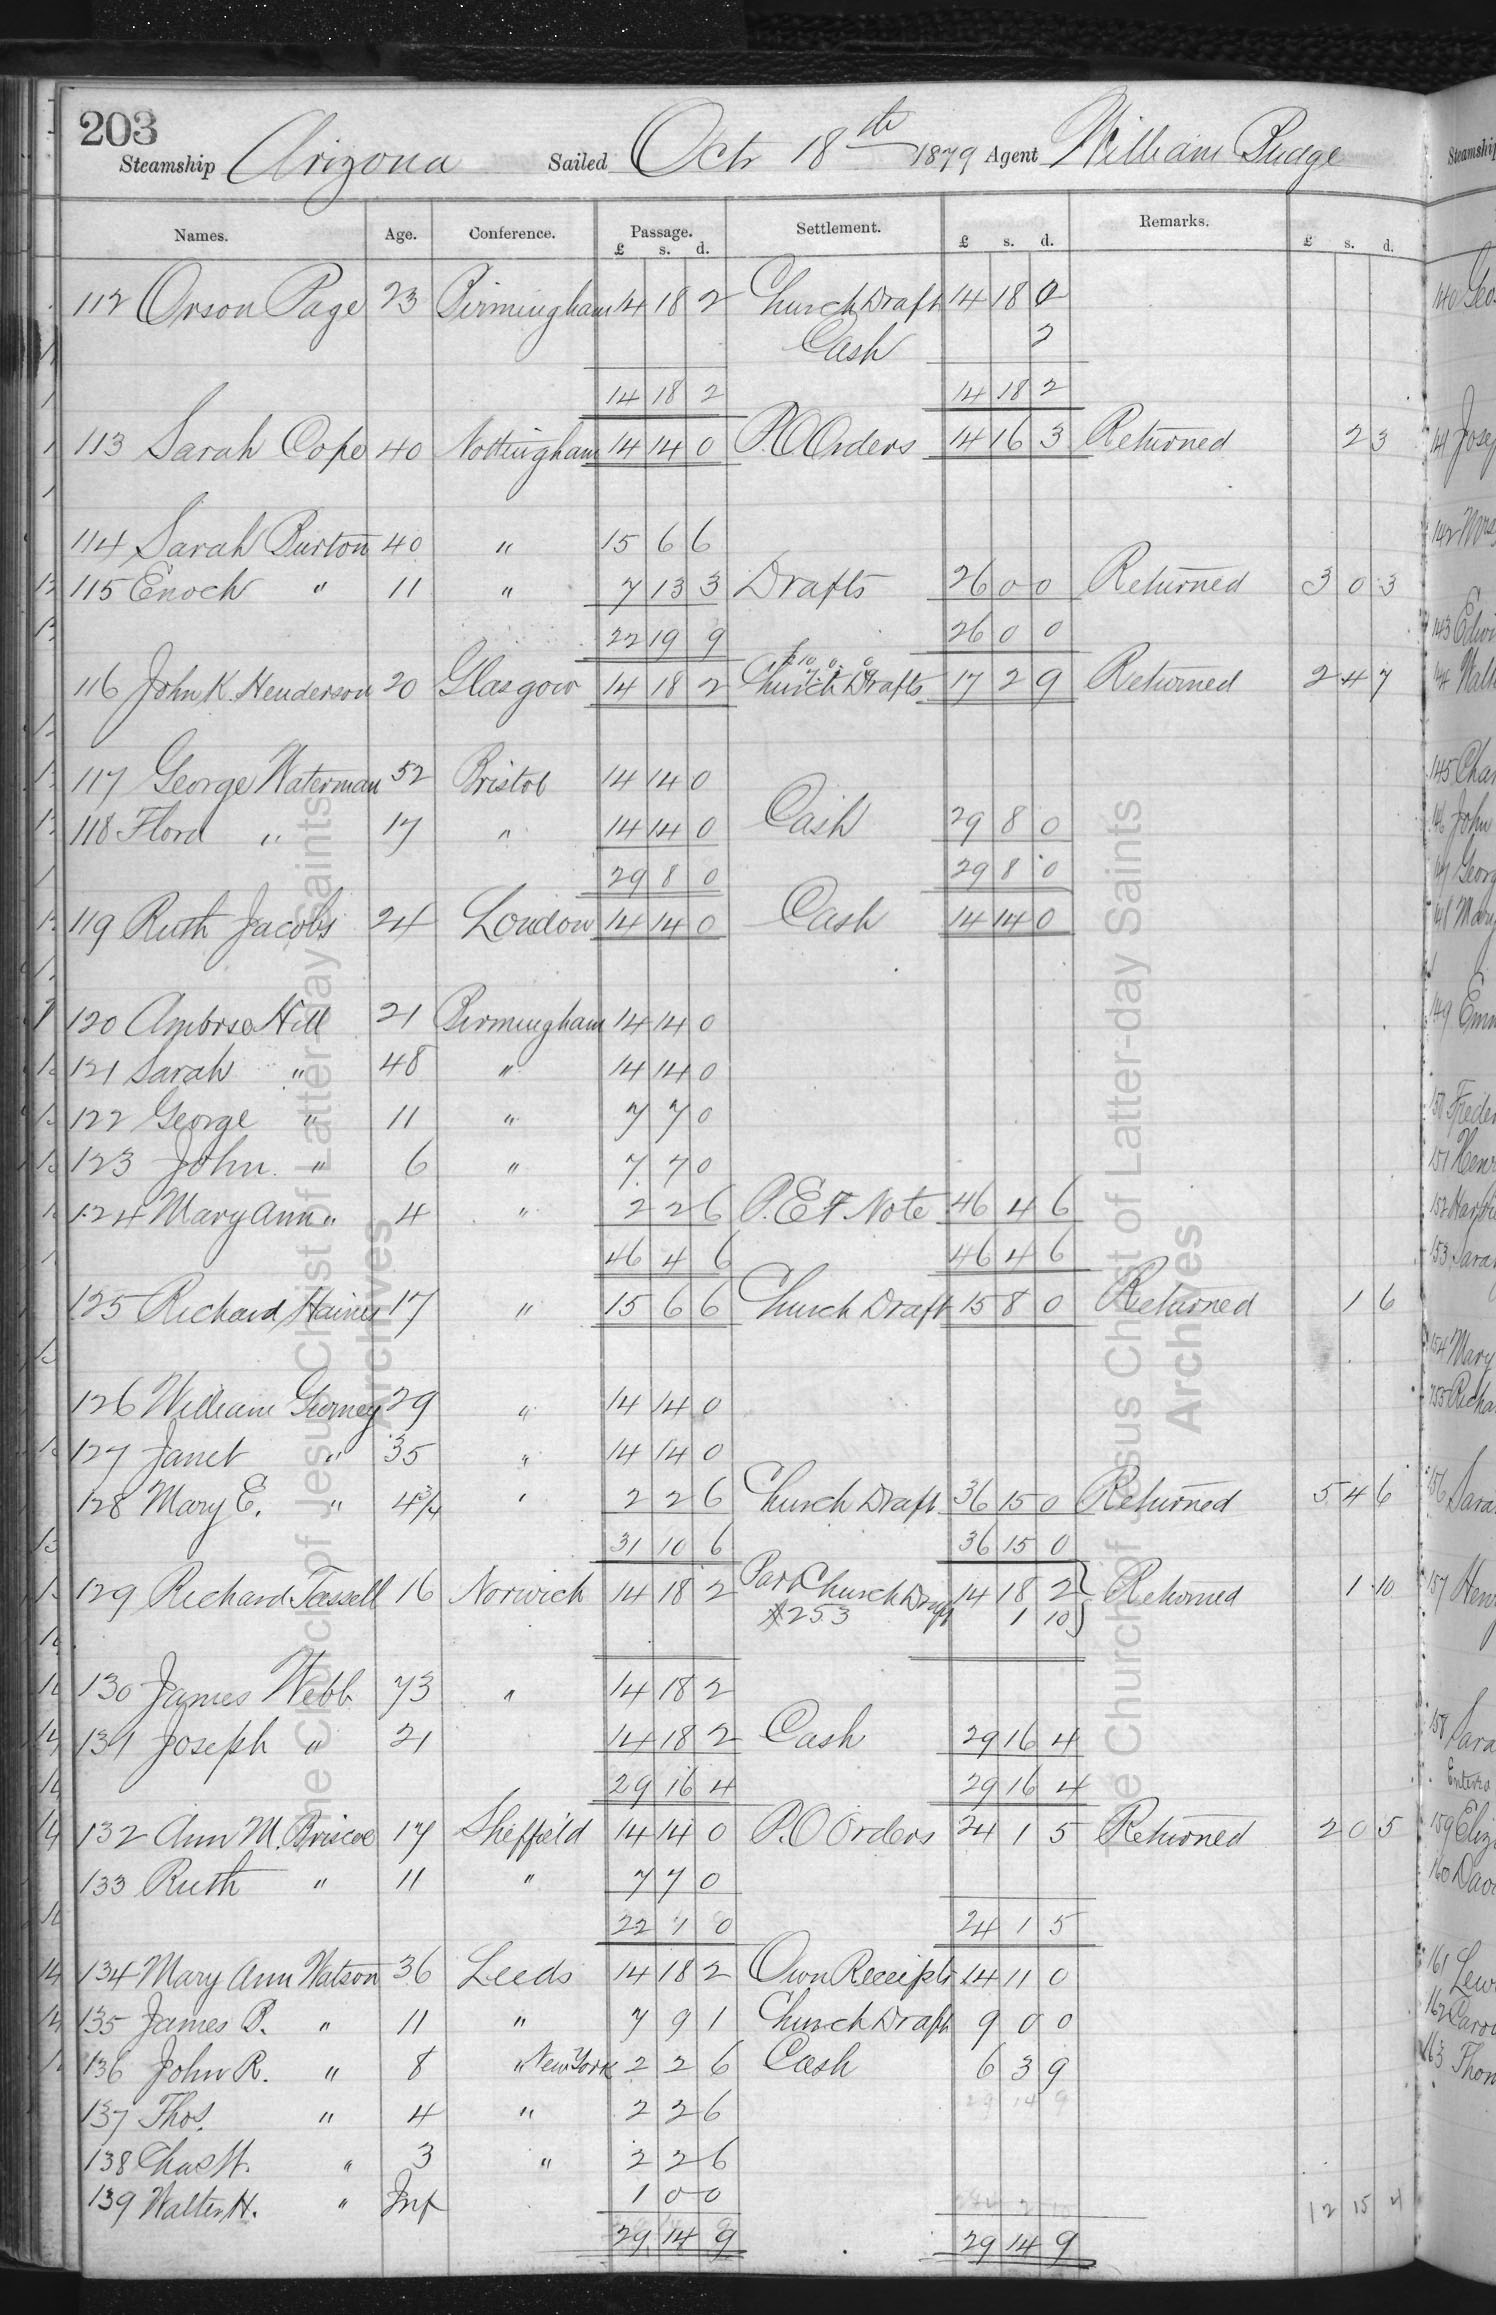 203
Steamship Arizona Sailed Oct 18th 1879 Agent William Budge
Names. Age. Conference. Passage. £ s. d. Settlement. £ s. d. Remarks. £ s. d.
112 Orson Page 23 Birmingham 14 18 2 Church Draft 14 18 0
Cash 2
14 18 2 14 18 2
113 Sarah Cope 40 Nottingham 14 14 0 P.O Orders 14 16 3 Returned 2 3
114 Sarah Burton 40 " 15 6 6
115 Enoch " 11 " 7 13 3 Drafts 26 0 0 Returned 3 0 3
22 19 9 26 0 0
116 John K. Henderson 20 Glasgow 14 18 2 Church Drafts 17 2 9 Returned 2 4 7
117 George Waterman 52 Bristol 14 14 0
118 Flora " 17 " 14 14 0 Cash 29 8 0
29 8 0 29 8 0
119 Ruth Jacobs 24 London 14 14 0 Cash 14 14 0
120 Ambrse Hill 21 Birmingham 14 14 0
121 Sarah " 48 " 14 14 0
122 George " 11 " 7 7 0
123 John " 6 " 7 7 0
124 Mary Ann " 4 " 2 2 6 P.E F Note 46 4 6
46 4 6 46 4 6
125 Richard Haines 17 " 15 6 6 Church Draft 15 8 0 Returned 1 6
126 William Gurney 29 " 14 14 0
127 Janet " 35 " 14 14 0
128 Mary E. " 4 3/4 " 2 2 6 Church Draft 36 15 0 Returned 5 4 6
31 10 6 36 15 0
129 Richard Tassell 16 Norwich 14 18 2 Part Church Draft 14 18 2 } Returned 1 10
#253 1 10
130 James Webb 73 " 14 18 2
131 Joseph " 21 14 18 2 Cash 29 16 4
29 16 4 29 16 4
132 Ann M. Briscoe 17 Sheffield 14 14 0 P.O Orders 24 1 5 Returned 2 0 5
133 Ruth " 11 " 7 7 0
22 1 0 24 1 5
134 Mary Ann Watson 36 Leeds 14 18 2 Own Receipts 14 11 0
135 James B. " 11 " 7 9 1 Church Draft 9 0 0
136 John R. " 8 " New York 2 2 6 Cash 6 3 9
137 Thos. " 4 " 2 2 6 29 14 9
138 Chas W. " 3 " 2 2 6
139 Walter H. " Inf 1 0 0 12 15 4
29 14 9 29 14 9
The Church of Jesus Christ of Latter-day Saints
Archives
The Church of Jesus Christ of Latter-day Saints
Archives